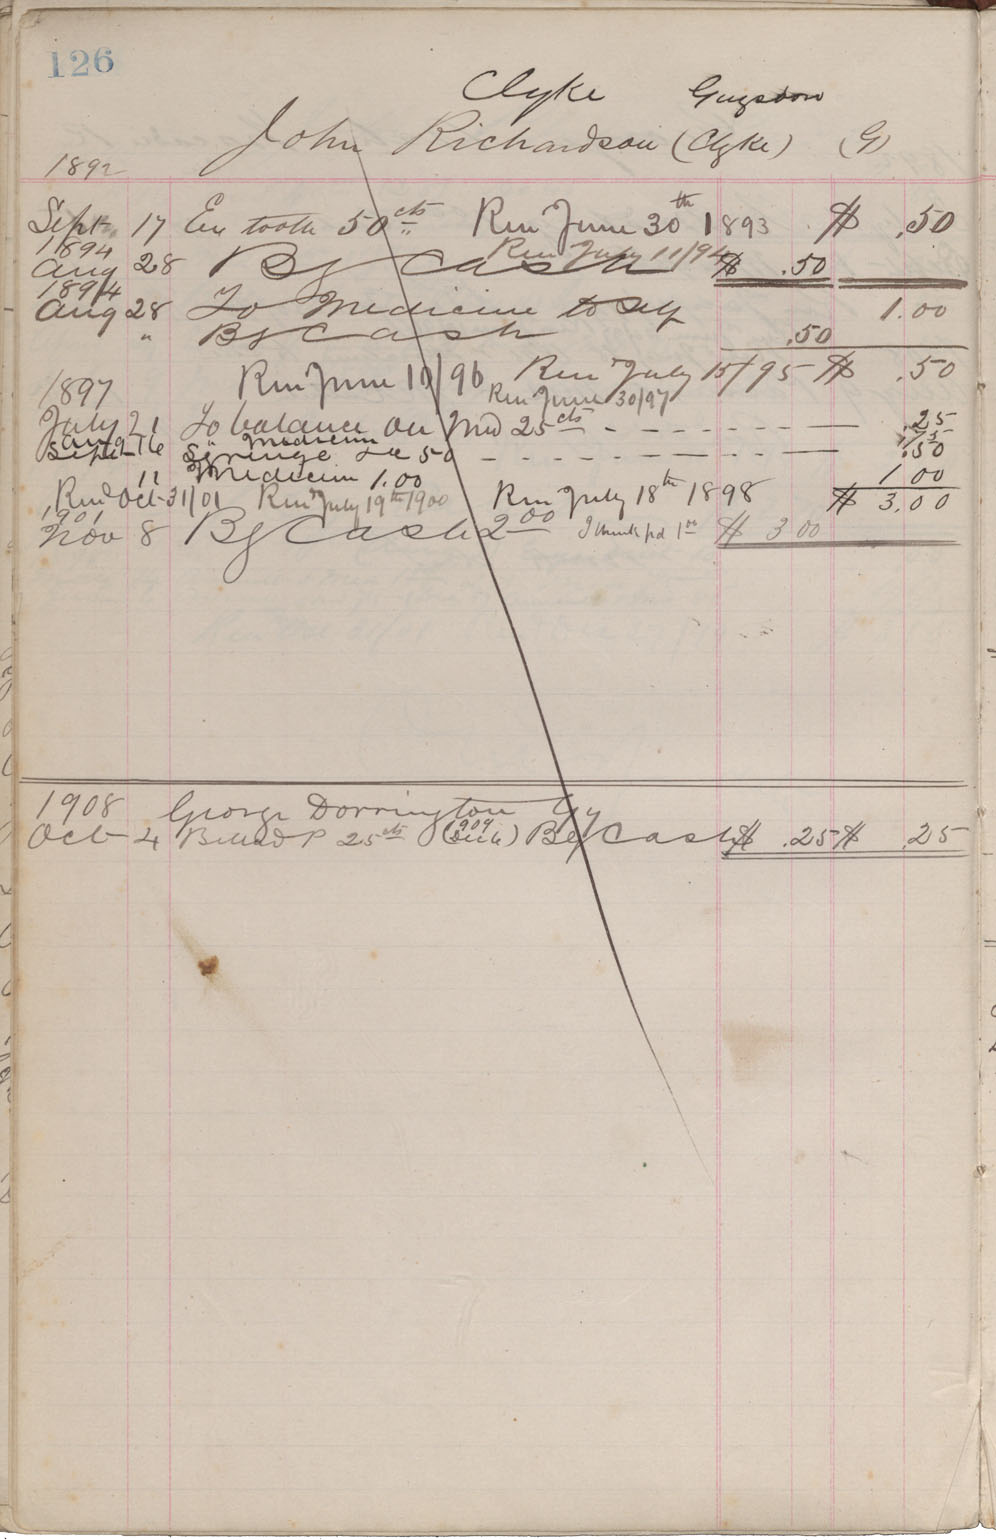 126
Clyke Guysboro
John Richardson (Clyke) (G)
1892
Sept 17 Ex tooth 50 cts Ren June 30th 1893 $ .50
1894 Ren July 11/94
Aug 28 By Cash $ .50
1894
Aug 28 To Medicine to Self 1.00
" By Cash .50
Ren June 10/96 Ren July 15/95 $ .50
1897 Ren June 30/97
July 21 To balance on Med 25 cts .25
Aug Medicine
Sept 16 Syringe 50 .50
" Medicine 1.00 1 00
Rend Oct 31/01 Ren July 19th 1900 Ren July 18th 1898 $ 3.00
1901
Nov 8 By Cash 2 00 I think pd 1 00 $ 3 00
1908 George Dorrington Gy
Oct 4 25 cts By Cash $ .25 $ .25